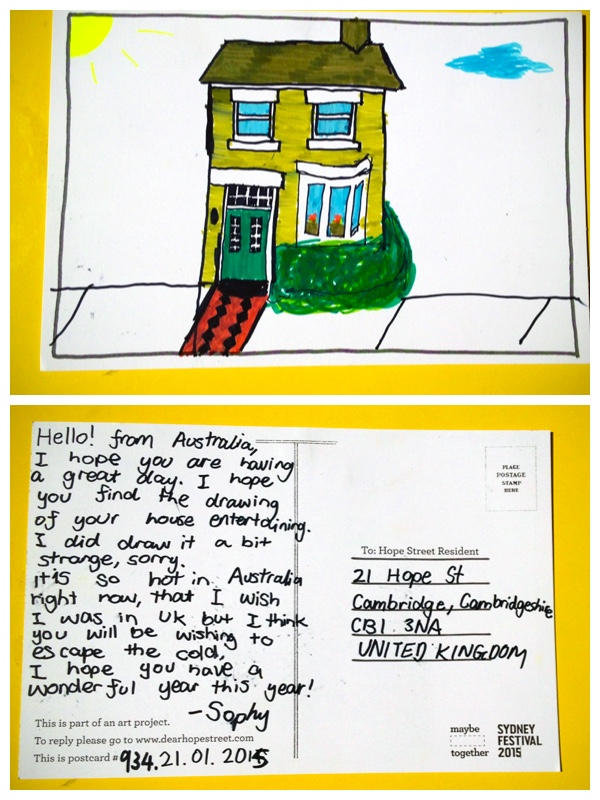 Hello! from Australia,
I hope you are having
a great day. I hope
you find the drawing
of your house entertaining.
I did draw it a bit
strange, sorry.
it is so hot in Australia
right now, that I wish
I was in UK but I think
you will be wishing to
escape the cold,
I hope you have a
wonderful year this year!
-Sophy
This is part of an art project.
To reply please go to www.dearhopestreet.com
This is postcard #934.21.01.2015
PLACE
POSTAGE
STAMP
HERE
To: Hope Street Resident
21 Hope St
Cambridge, Cambridgeshire
CB1 3NA
UNITED KINGDOM
maybe
together
SYDNEY
FESTIVAL
2015